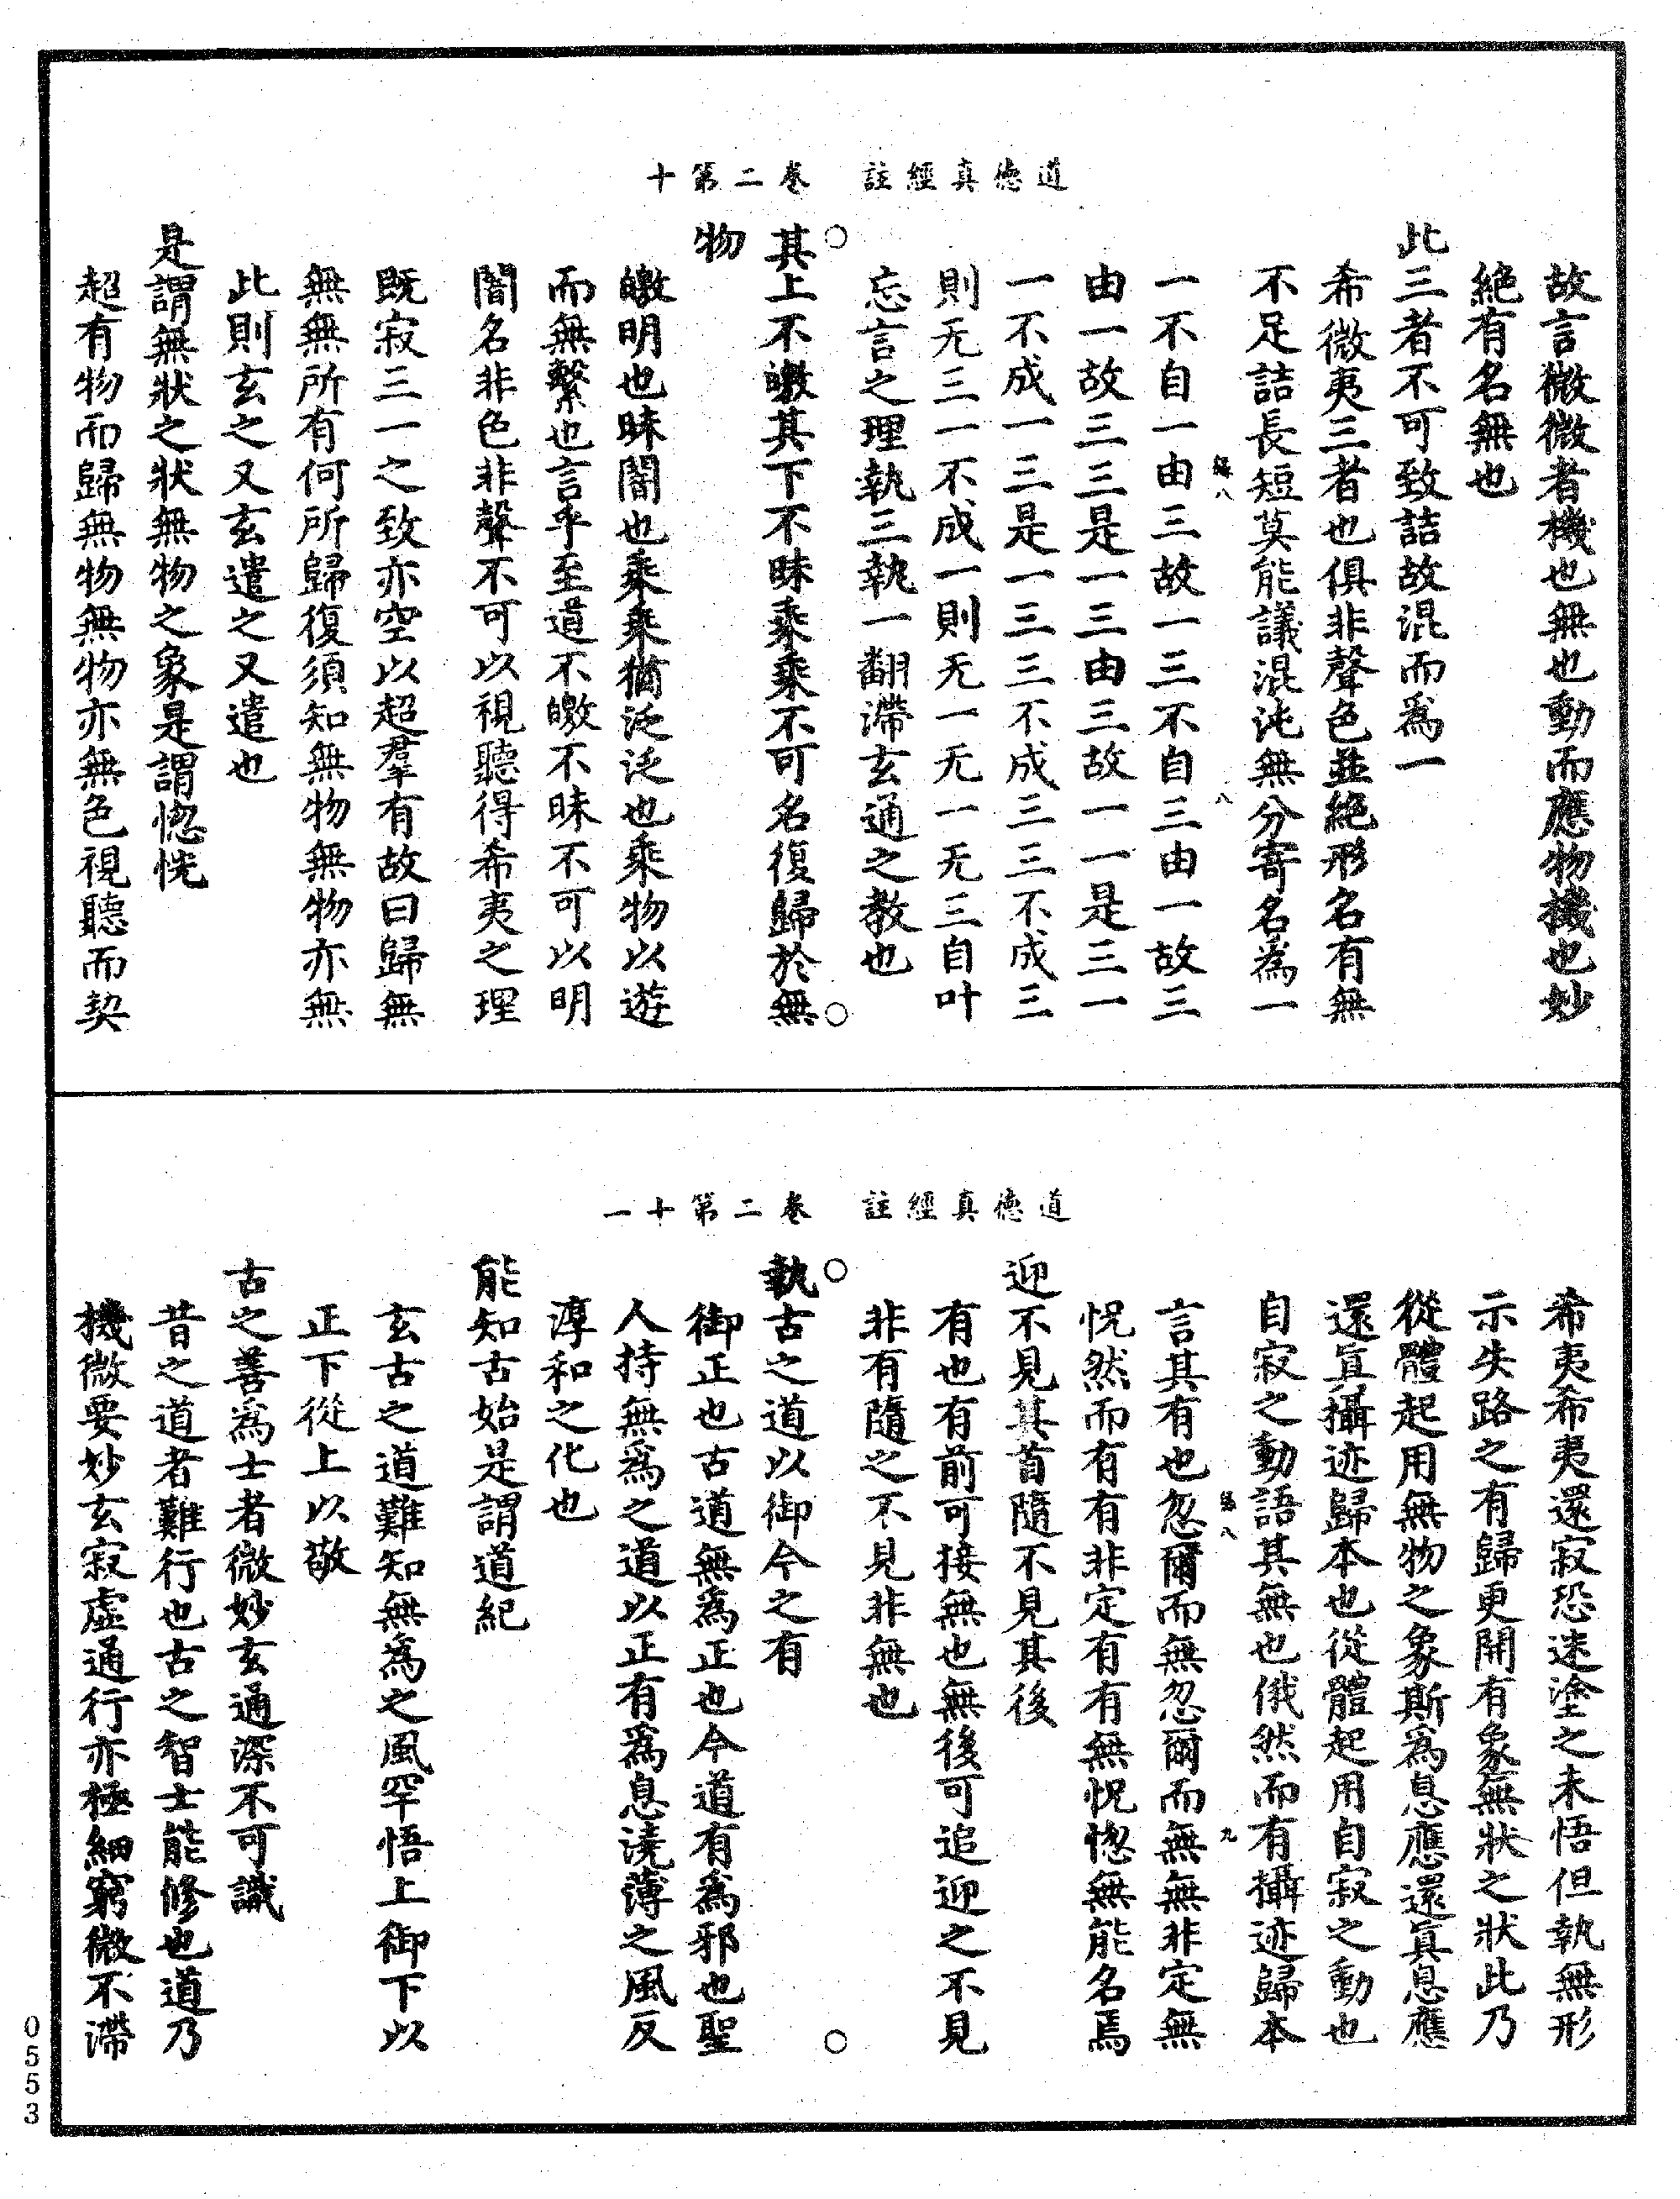 道德真經註　卷二第十
故言微微者機也無也動而應物機也妙
絕有名無也
此三者不可致詰故混而為一
希微夷三者也俱非聲色並絕形名有無
不足詰長短莫能議混沌無分寄名為一
一不自一由三故一三不自三由一故三
由一故三三是一三由三故一一是三一
一不成一三是一三三不成三三不成三
則无三一不成一則无一无一无三自叶
忘言之理執三執一翻滯玄通之教也
其上不皦其下不昧乘乘不可名復歸於無
物
皦明也昧闇也乘乘猶泛泛也乘物以遊
而無繫也言乎至道不皦不昧不可以明
闇名非色非聲不可以視聽得希夷之理
既寂三一之致亦空以超羣有故曰歸無
無無所有何所歸復須知無物無物亦無
此則玄之又玄遣之又遣也
是謂無狀之狀無物之象是謂惚恍
超有物而歸無物無物亦無色視聽而契
道德真經註　卷二第十一
希夷希夷還寂恐迷塗之未悟但執無形
示失路之有歸更開有象無狀之狀此乃
從體起用無物之象斯為息應還真息應
還真攝迹歸本也從體起用自寂之動也
自寂之動語其無也俄然而有攝迹歸本
言其有也忽爾而無忽爾而無無非定無
怳然而有有非定有有無怳惚無能名焉
迎不見其首隨不見其後
有也有前可接無也無後可追迎之不見
非有隨之不見非無也
執古之道以御今之有
御正也古道無為正也今道有為邪也聖
人持無為之道以正有為息澆薄之風反
淳和之化也
能知古始是謂道紀
玄古之道難知無為之風罕悟上御下以
正下從上以敬
古之善為士者微妙玄通深不可識
昔之道者難行也古之智士能修也道乃
機微要妙玄寂虛通行亦極細窮微不滯
0553